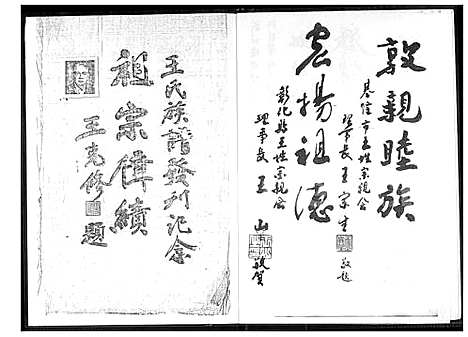 敦親睦族
基隆市王姓宗親會
理事長王宗生
敬題
宏揚祖德
彰化縣王姓宗親會
理事長王山
敬賀
王氏族譜發刊記念
祖宗偉績
王克修題